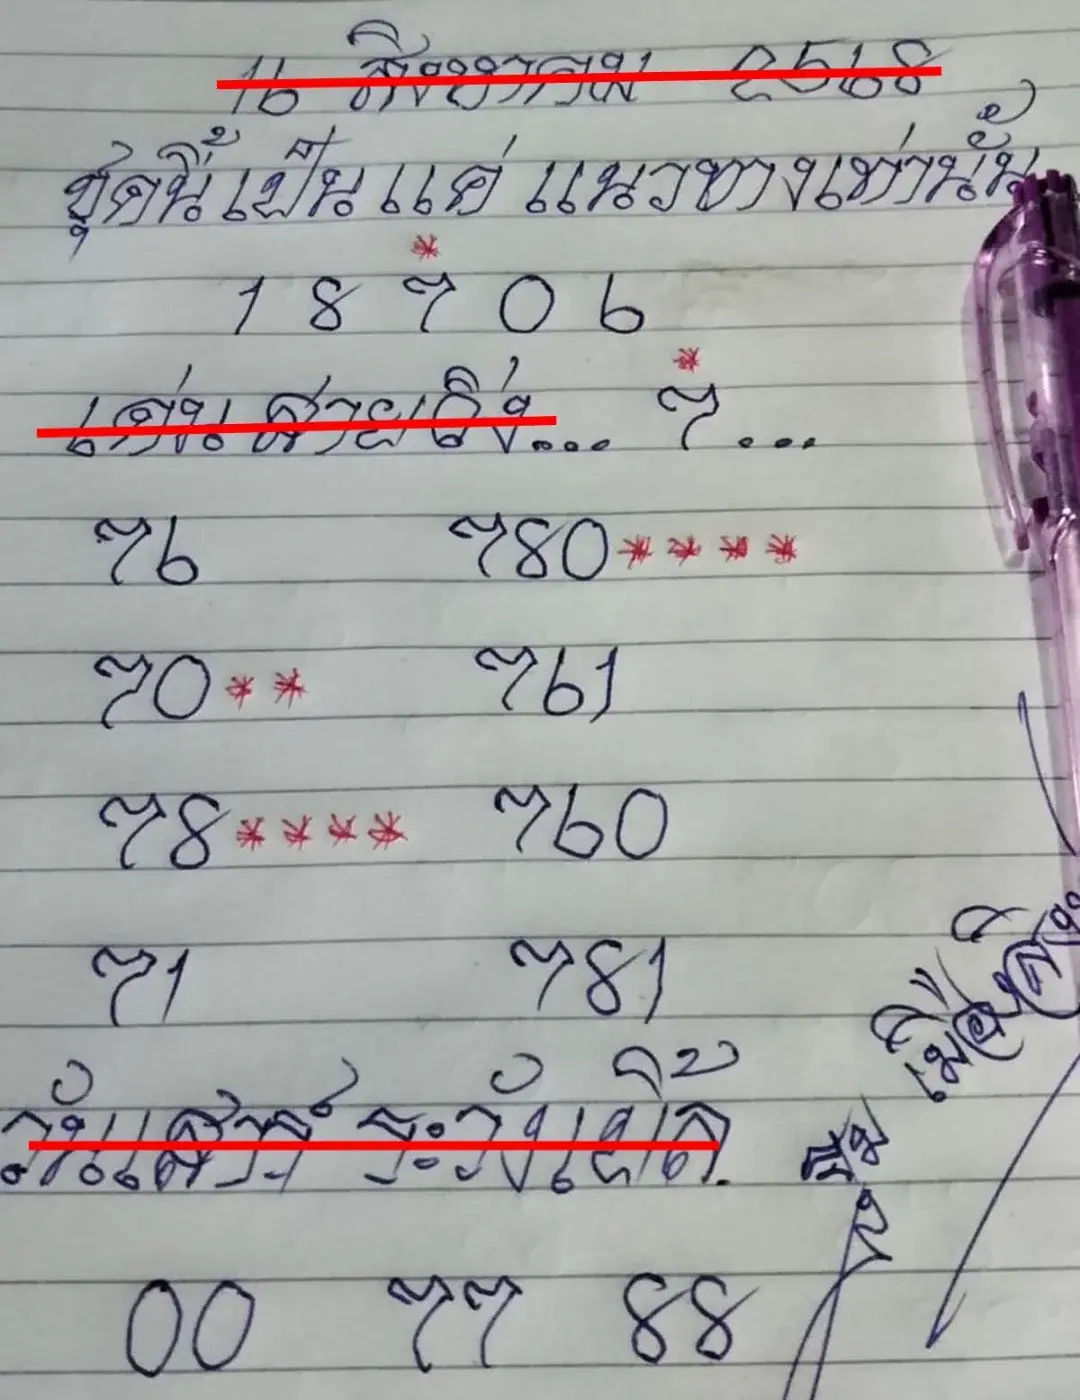 16 สิงหาคม 2568
ชุดนี้เป็นแค่ แนวทางเท่านั้น
1 8 7 0 6
เด่นสายวิ่ง... 7...
76 780
70 761
78 760
71 781
วันเสาร์ ระวัง
00 77 88